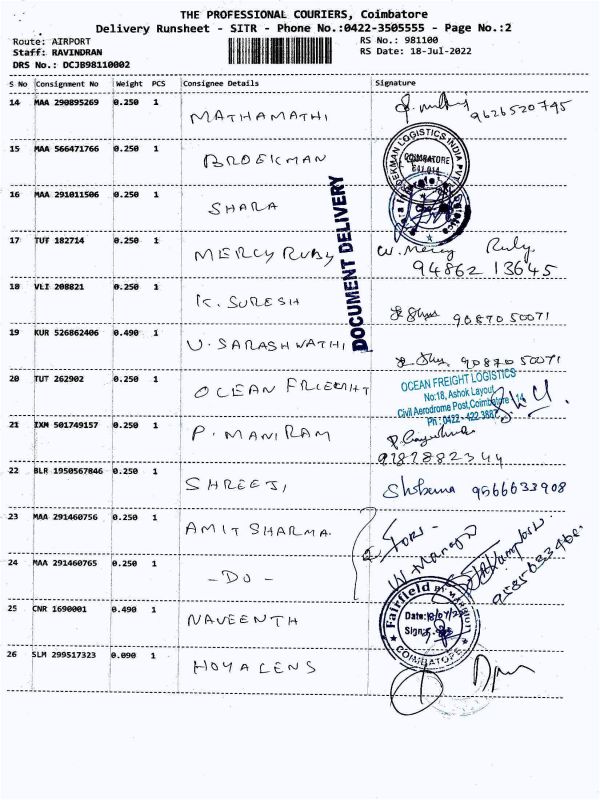 THE PROFESSIONAL COURIERS, Coimbatore
Delivery Runsheet - SITR - Phone No.:0422-3505555 - Page No.:2
Route: AIRPORT RS No.: 981100
Staff: RAVINDRAN RS Date: 18-Jul-2022
DRS No.: DCJB98110002
S No Consignment No Weight PCS Consignee Details Signature
14 MAA 290895269 0.250 1 MATHAMATHI 9626520745
15 MAA 566471766 0.250 1 BROEKMAN
BROEKMAN LOGISTICS INDIA PVT.
COIMBATORE
641 014
16 MAA 291011506 0.250 1 SHARA
DOCUMENT DELIVERY
17 TUF 182714 0.250 1 MERCY RUBY W. Mercy Ruby
94862 13645
18 VLI 208821 0.250 1 K. SURESH 90870 50071
19 KUR 526862406 0.490 1 U. SARASHWATHI 90870 50071
20 TUT 262902 0.250 1 OCEAN FRIEGHT
OCEAN FREIGHT LOGISTICS
No:18, Ashok Layout,
Civil Aerodrome Post, Coimbatore - 14
Ph : 0422 - 422 3887
21 IXM 501749157 0.250 1 P. MANIRAM
22 BLR 1950567846 0.250 1 SHREEJI Shobana 9566633908
23 MAA 291460756 0.250 1 AMIT SHARMA
24 MAA 291460765 0.250 1 - DO -
25 CNR 1690001 0.490 1 NAVEENTH
Fairfield BY MARRIOTT
Date: 18/07/22
Sign:
COIMBATORE
26 SLM 299517323 0.090 1 HOYA LENS